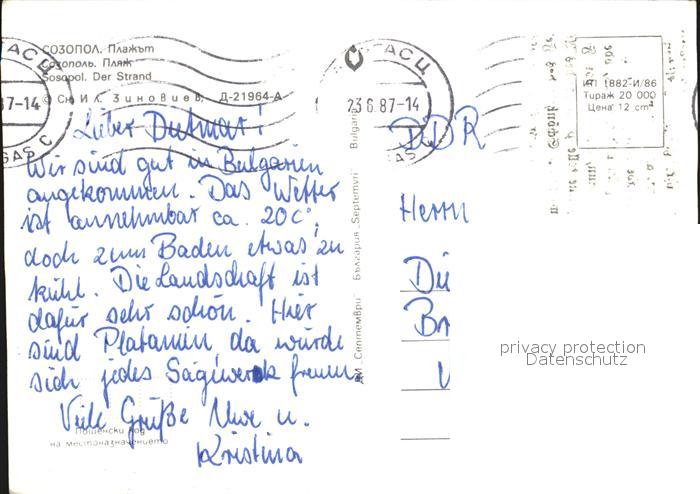 СОЗОПОЛ. Плажът
Созополь. Пляж
Sosopol. Der Strand
© Сн. Ил. Зиновиев, Д-21964-А
АСЦ
87-14
GAS C
АСЦ
23.6.87-14
GAS
ИП 1882-И/86
Тираж 20 000
Цена 12 cm
Lieber Dietmar!
Wir sind gut in Bulgarien
angekommen. Das Wetter
ist annehmbar ca. 20C°,
doch zum Baden etwas zu
kühl. Die Landschaft ist
dafür sehr schön. Hier
sind Platanen, da würde
sich jedes Sägewerk freuen.
Viele Grüße Uwe u.
Kristina
Пощенски код
на местоназначението
ДИ „Септември" България „Septemvri" Bulgaria
DDR
Herrn
Di
Br
privacy protection
Datenschutz